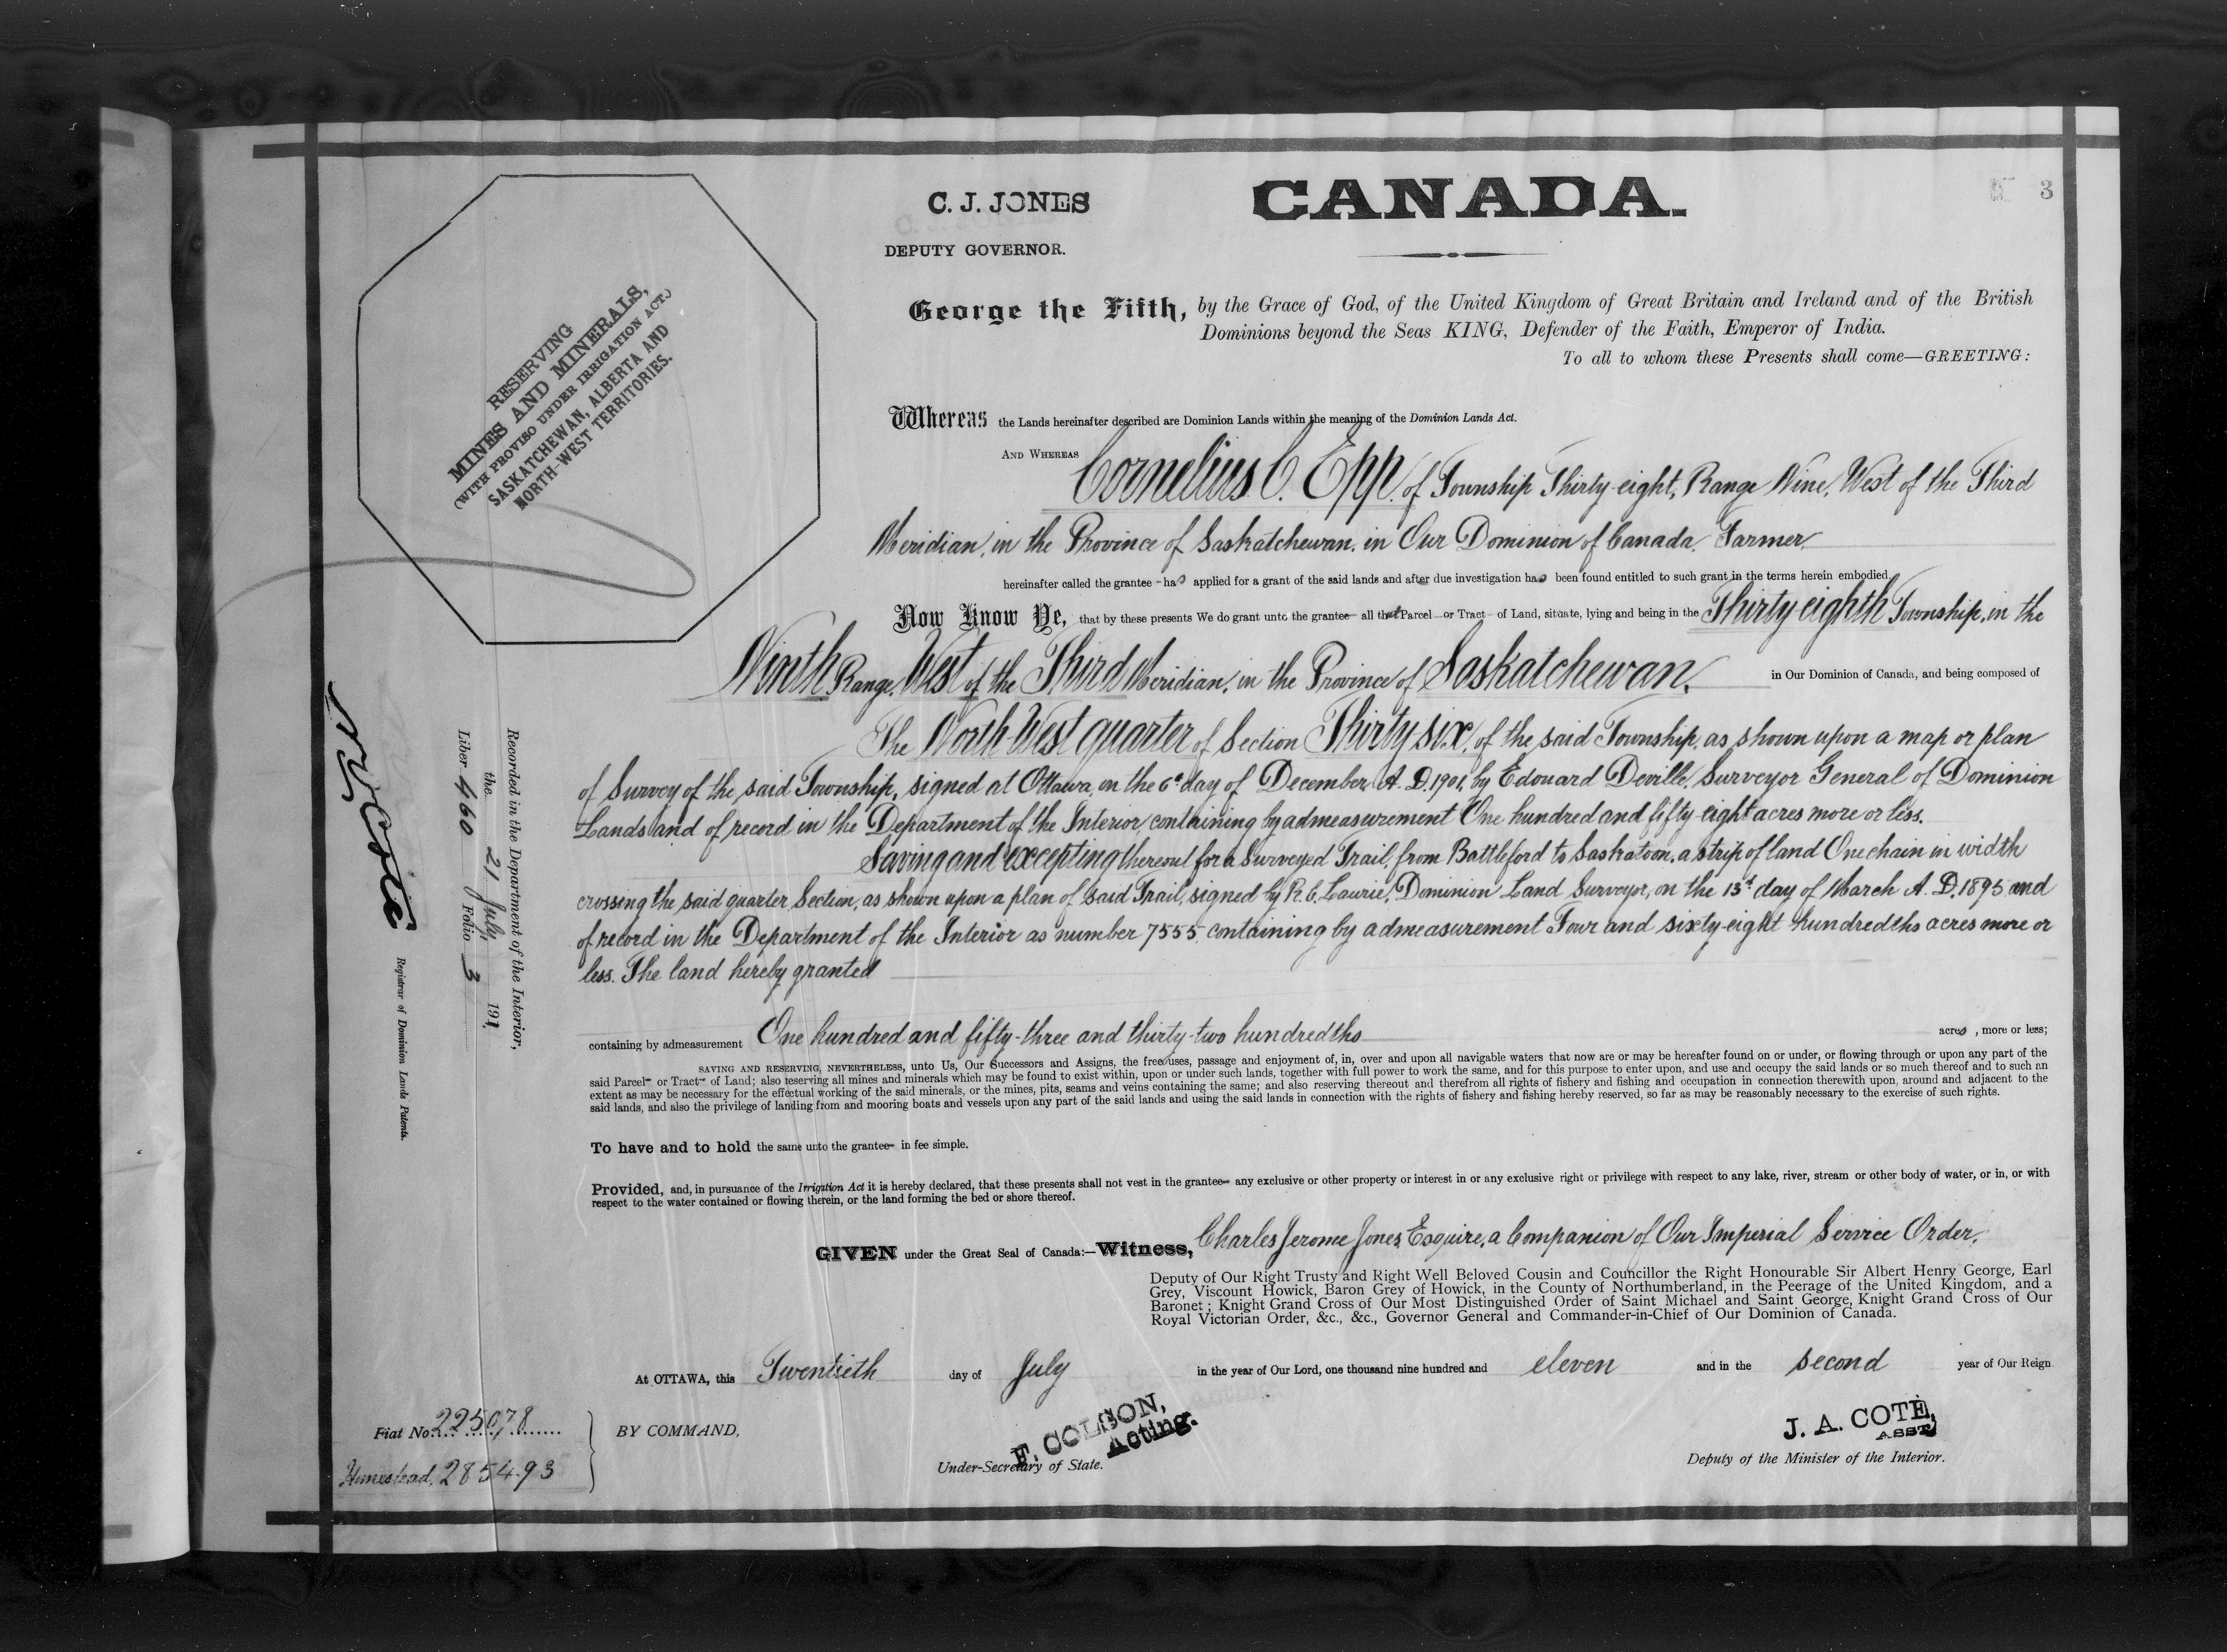 C. J. JONES
DEPUTY GOVERNOR.
CANADA.
3
RESERVING
MINES AND MINERALS,
(WITH PROVISO UNDER IRRIGATION ACT.)
SASKATCHEWAN, ALBERTA AND
NORTH-WEST TERRITORIES.
George the Fifth, by the Grace of God, of the United Kingdom of Great Britain and Ireland and of the British
Dominions beyond the Seas KING, Defender of the Faith, Emperor of India.
To all to whom these Presents shall come—GREETING:
Whereas the Lands hereinafter described are Dominion Lands within the meaning of the Dominion Lands Act.
AND WHEREAS Cornelius C. Epp of Township Thirty-eight, Range Nine, West of the Third
Meridian, in the Province of Saskatchewan, in Our Dominion of Canada, Farmer,
hereinafter called the grantee - has applied for a grant of the said lands and after due investigation has been found entitled to such grant in the terms herein embodied.
Now Know Ye, that by these presents We do grant unto the grantee all that Parcel or Tract of Land, situate, lying and being in the Thirty eighth Township, in the
Ninth Range, West of the Third Meridian, in the Province of Saskatchewan, in Our Dominion of Canada, and being composed of
The North West quarter of Section Thirty six, of the said Township, as shown upon a map or plan
of Survey of the said Township, signed at Ottawa, on the 6th day of December, A. D. 1901, by Edouard Deville, Surveyor General of Dominion
Lands and of record in the Department of the Interior, containing by admeasurement One hundred and fifty-eight acres more or less.
Saving and excepting thereout for a Surveyed Trail, from Battleford to Saskatoon, a strip of land One chain in width
crossing the said quarter Section, as shown upon a plan of said Trail, signed by R. C. Laurie, Dominion Land Surveyor, on the 13th day of March A. D. 1895 and
of record in the Department of the Interior as number 7555, containing by admeasurement Four and sixty-eight hundredths acres more or
less. The land hereby granted
containing by admeasurement One hundred and fifty-three and thirty-two hundredths acres, more or less;
SAVING AND RESERVING, NEVERTHELESS, unto Us, Our Successors and Assigns, the free uses, passage and enjoyment of, in, over and upon all navigable waters that now are or may be hereafter found on or under, or flowing through or upon any part of the
said Parcel or Tract of Land; also reserving all mines and minerals which may be found to exist within, upon or under such lands, together with full power to work the same, and for this purpose to enter upon, and use and occupy the said lands or so much thereof and to such an
extent as may be necessary for the effectual working of the said minerals, or the mines, pits, seams and veins containing the same; and also reserving thereout and therefrom all rights of fishery and fishing and occupation in connection therewith upon, around and adjacent to the
said lands, and also the privilege of landing from and mooring boats and vessels upon any part of the said lands and using the said lands in connection with the rights of fishery and fishing hereby reserved, so far as may be reasonably necessary to the exercise of such rights.
To have and to hold the same unto the grantee in fee simple.
Provided, and, in pursuance of the Irrigation Act it is hereby declared, that these presents shall not vest in the grantee any exclusive or other property or interest in or any exclusive right or privilege with respect to any lake, river, stream or other body of water, or in, or with
respect to the water contained or flowing therein, or the land forming the bed or shore thereof.
GIVEN under the Great Seal of Canada:—Witness, Charles Jerome Jones, Esquire, a Companion of Our Imperial Service Order,
Deputy of Our Right Trusty and Right Well Beloved Cousin and Councillor the Right Honourable Sir Albert Henry George, Earl
Grey, Viscount Howick, Baron Grey of Howick, in the County of Northumberland, in the Peerage of the United Kingdom, and a
Baronet; Knight Grand Cross of Our Most Distinguished Order of Saint Michael and Saint George, Knight Grand Cross of Our
Royal Victorian Order, &c., &c., Governor General and Commander-in-Chief of Our Dominion of Canada.
At OTTAWA, this Twentieth day of July in the year of Our Lord, one thousand nine hundred and eleven and in the second year of Our Reign
BY COMMAND,
F. COLSON,
Acting.
Under-Secretary of State.
J. A. COTÉ,
ASST
Deputy of the Minister of the Interior.
Fiat No. 225078
Homestead, 285493
Recorded in the Department of the Interior,
the 21 July, 1911,
Liber 460 Folio 3
N. O. Coté
Registrar of Dominion Lands Patents.